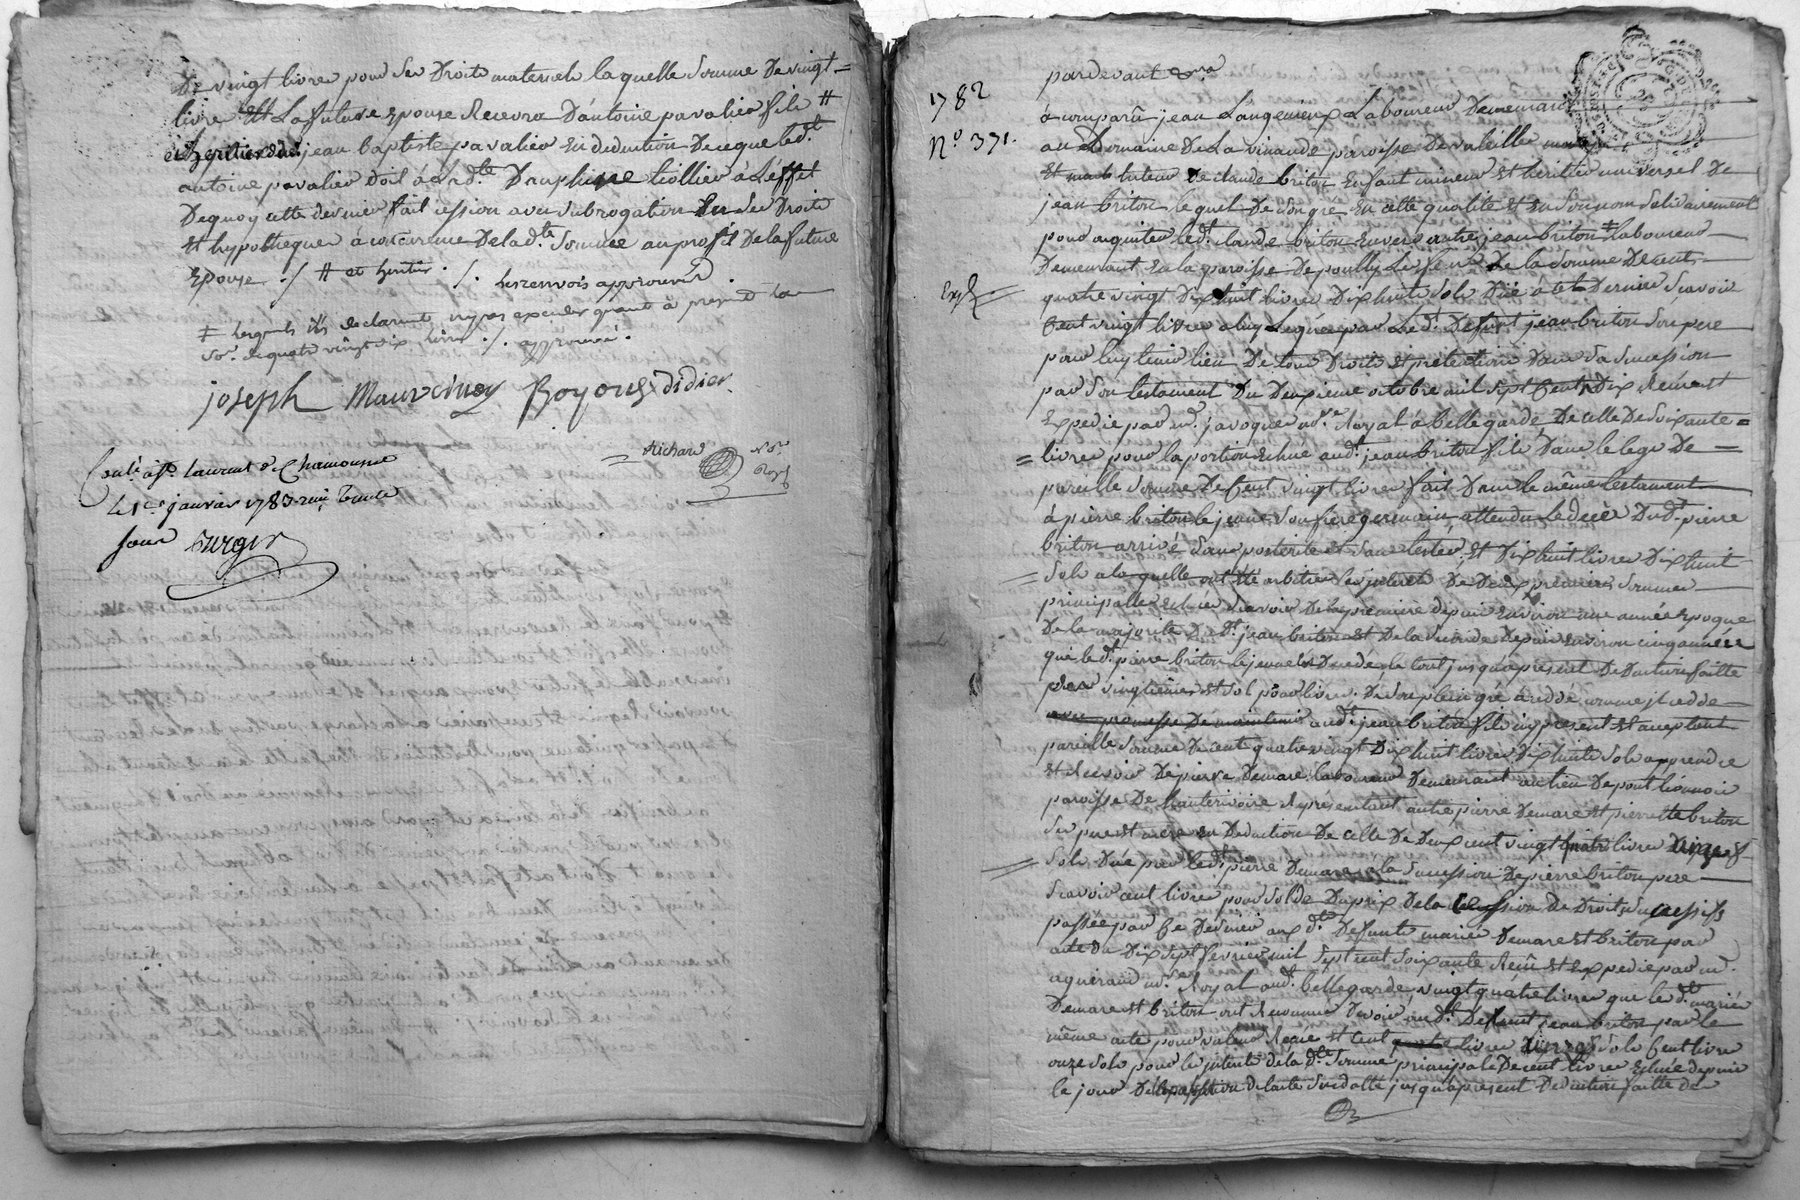 De vingt livres pour ses Droits maternels laquelle somme De vingt=
livres La future Epouse Recevra D'antoine pavalier fils #
jean baptiste pavalier En deduction De ce que led.t
antoine pavalier doit à lad.te Dauphine tiollier à L'effet
De quoy cette derniere fait cession avec subrogation En ses Droits
Et hypotheques à concurrence De lad.te Somme au profit De la future
Epouse ./ # et heritier ./. les renvois approuvés
declarent n'exceder quant à present La
so.e de quatre vingt dix livres ./. approuvé.
joseph Maurcino Boyoud didier
Richard No.re Royal
Con.lé à S.t Laurent de Chamousset
Le 1.er janvier 1783 reçu trente
sous burgos
1782
N.o 371.
pardevant &.ra
à comparu jean L'angenieux Laboureur Demeurant
au Domaine De La vivande paroisse De valeille
tuteur De claude briton Enfant mineur Et heritier universel De
jean briton lequel De son gré En cette qualité Et En son nom solidairement
pour acquitter led.t claude briton Envers autre jean briton # laboureur
Demeurant En la paroisse De pouilly Les feurs De la somme De cent
Exp.é
quatre vingt Dix huit livres Dix huit sols Düe à cet Dernier Scavoir
Cent vingt livres à luy Leguée par Led.t Defunt jean briton son pere
pour luy tenir lieu De tous Droits et pretentions Dans sa succession
par son testament Du Deuxieme octobre mil sept Cent Dix Reçu Et
Expedié par m.e javogues n.re Royal à bellegarde, De celle De soixante=
= livres pour la portion Echue aud.t jean briton fils Dans le legs De
pareille somme De Cent vingt livres fait Dans le même testament
à pierre briton le jeune son frere germain, attendu le decès Dud.t pierre
briton arrivé sans posterité et sans tester, Et Dix huit livres Dix huit
sols a laquelle ont été arbitrés les interets De Deux premieres sommes
principalles Echües Scavoir De la premiere depuis Environ une année Epoque
De la majorité Du.d.t jean briton Et De la seconde Depuis environ cinq années
que le d.t pierre briton le jeune Est Decedé, le tout jusqu'à present Deduction faitte
Des vingtiemes Et sol pour livre. De son plein gré à cedé comme il cedde
avec promesse De maintenir aud.t jean briton fils icy present Et acceptant
pareille somme De cent quatre vingt Dix huit livres Dix huit sols apprendre
Et Recevoir De pierre Demare laboureur Demeurant au lieu De pont lionnois
paroisse De hauterivoire Representant autre pierre Demare Et pierrette briton
ses pere Et mere En Deduction De celle De Deux cent vingt quatre livres onze
sols Düe par led.t pierre Demare à la succession De pierre briton pere
Scavoir cent livres pour solde Du prix De la Cession De Droits successifs
passée par Ce Dernier aux d.ts Defunts mariés Demare Et briton par
acte du Dix sept fevrier mil sept cent soixante Reçu Et Expedié par m.e
agueraud n.re Royal aud.t bellegarde, vingt quatre livres que les d.ts mariés
Demare Et briton ont Reconnu Devoir aud.t Defunt jean briton par le
même acte pour valeur Reçue Et Cent livres onze sols Cent livres
onze sols pour les interets de la d.te somme principale De cent livres Echus depuis
le jour De la passation de l'acte sus datté jusqu'à present Deduction faitte des